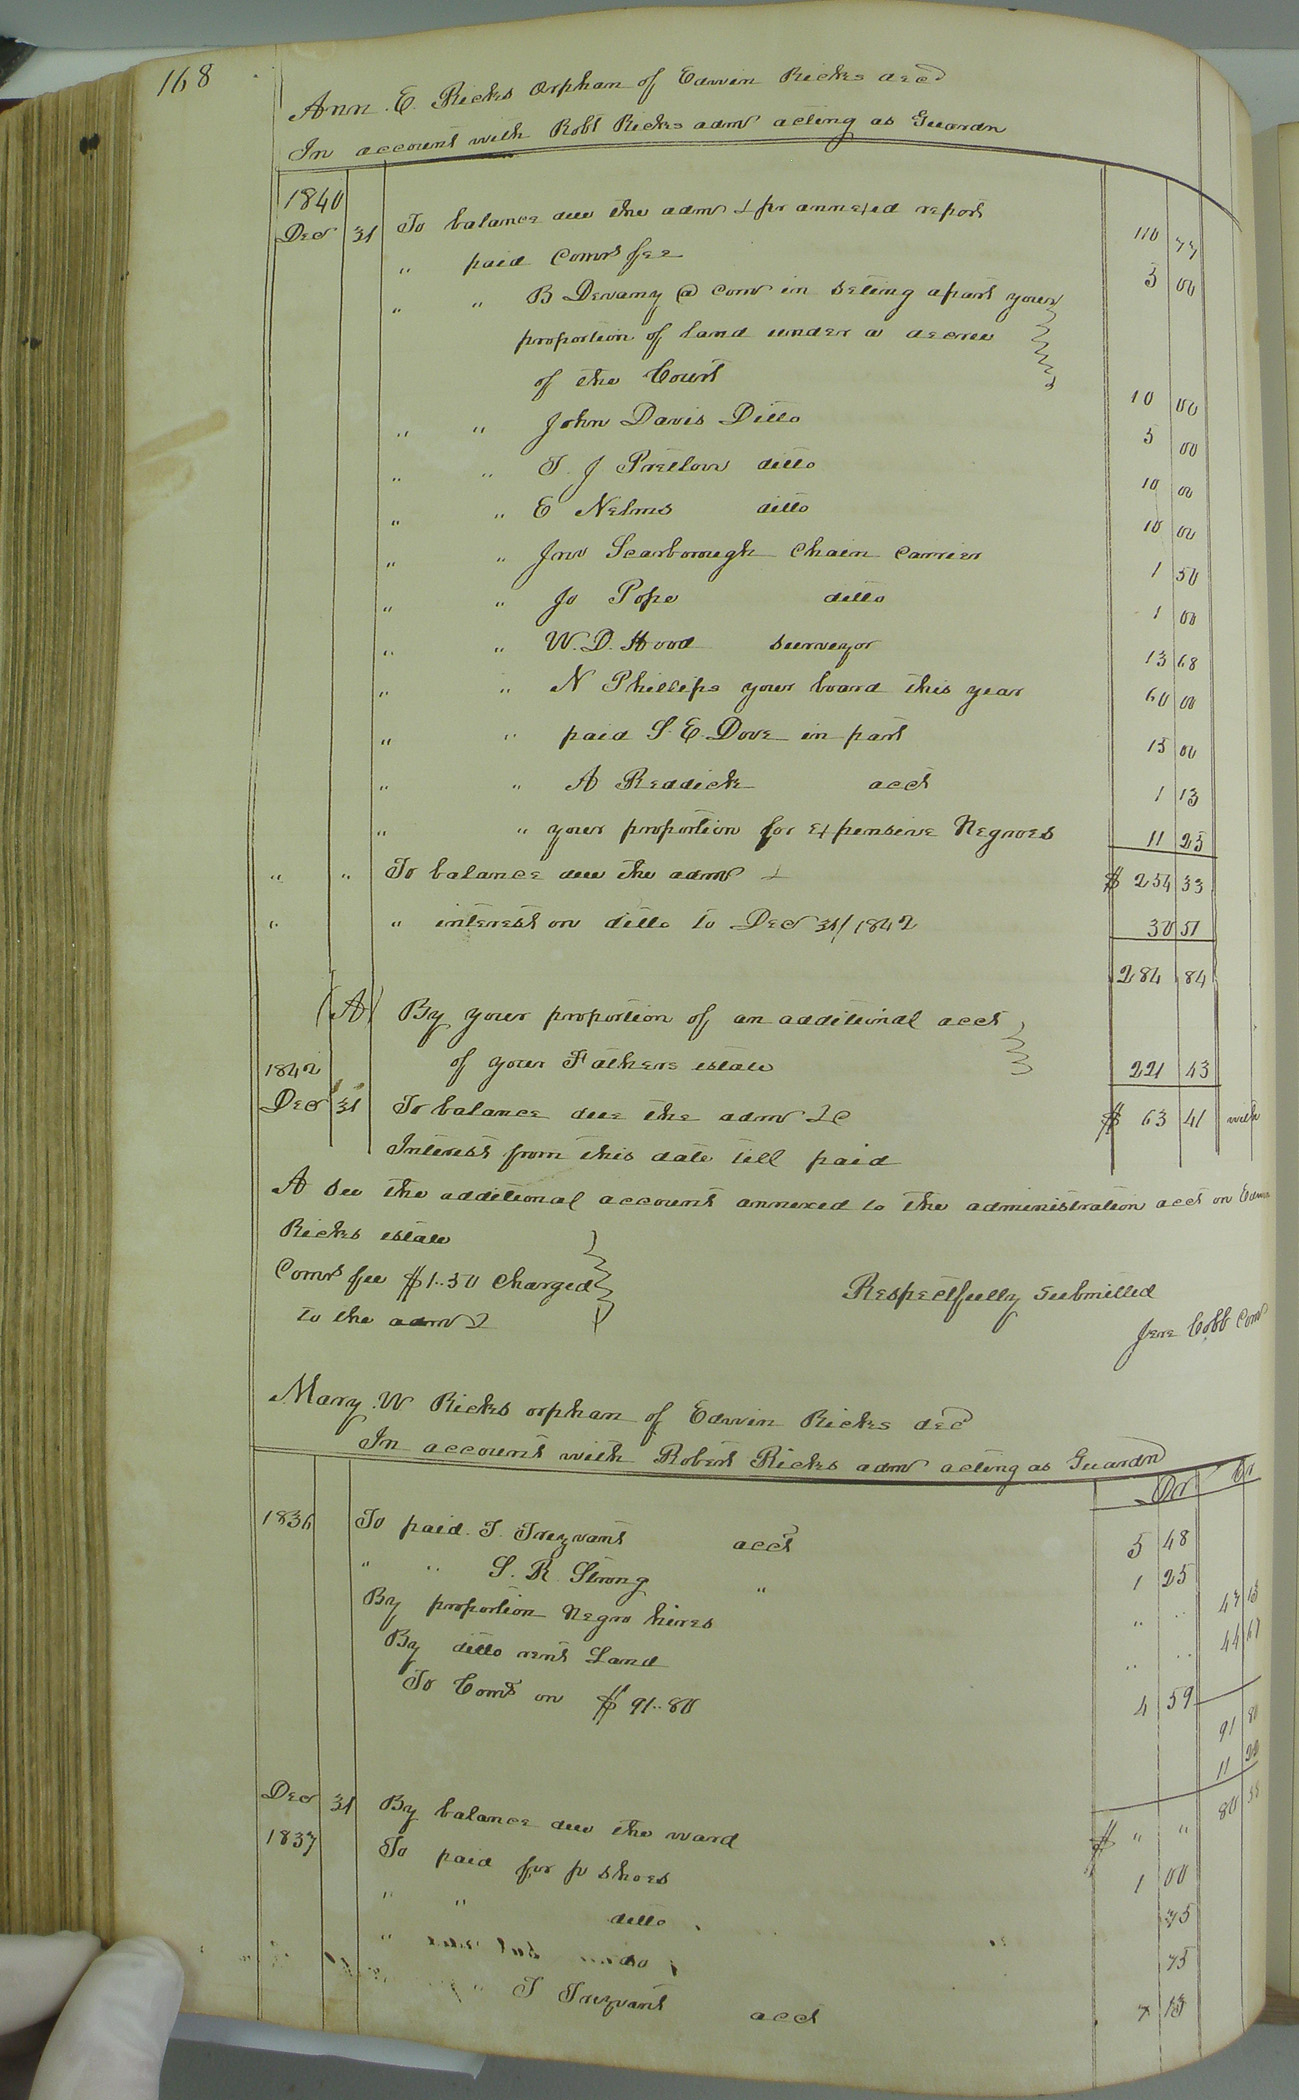 168
Ann. E. Ricks Orphan of Edwin Ricks decd
In account with Robt Ricks admr acting as Guardn
1840
Decr 31 To balance due the admr & pr annexed report 110 77
" paid Comrs fee 5 00
" " B Devany @ Comr in seting apart your
proportion of land under a decree
of the Court 10 00
" " John Davis Ditto 5 00
" " T J Pretlow ditto 10 00
" " E Nelms ditto 10 00
" " Jno Scarborough Chain Carrier 1 50
" " Jo Pope ditto 1 00
" " W. D. Hood surveyor 13 68
" " N Phillips your board this year 60 00
" " paid S. E. Dove in part 15 00
" " A Reddick acct 1 13
" " your proportion for expensive Negroes 11 25
" " To balance due the admr & $ 254 33
" " interest on ditto to Decr 31/1842 30 51
284 84
(A) By your proportion of an additional acct
of your Fathers estate 221 43
1842
Decr 31 To balance due the admr &c $ 63 41 with
Interest from this date till paid
A see the additional account annexed to the administration acct on Edwin
Ricks estate
Comrs fee $1..50 Charged
to the admr
Respectfully Submitted
Jere Cobb Comr
Mary. W Ricks orphan of Edwin Ricks decd
In account with Robert Ricks admr acting as Guardn
Dr Cr
1836 To paid. T. Trezvant acct 5 48
" " S. R. Strong " 1 25
By proportion Negro hires " " 47 13
By ditto rent Land " " 44 67
To Coms on $ 91..80 4 59
91 80
11 32
Decr 31 By balance due the ward $ " " 80 58
1837 To paid for pr shoes 1 00
" " ditto 75
" 75
" T Trezvant acct 7 13